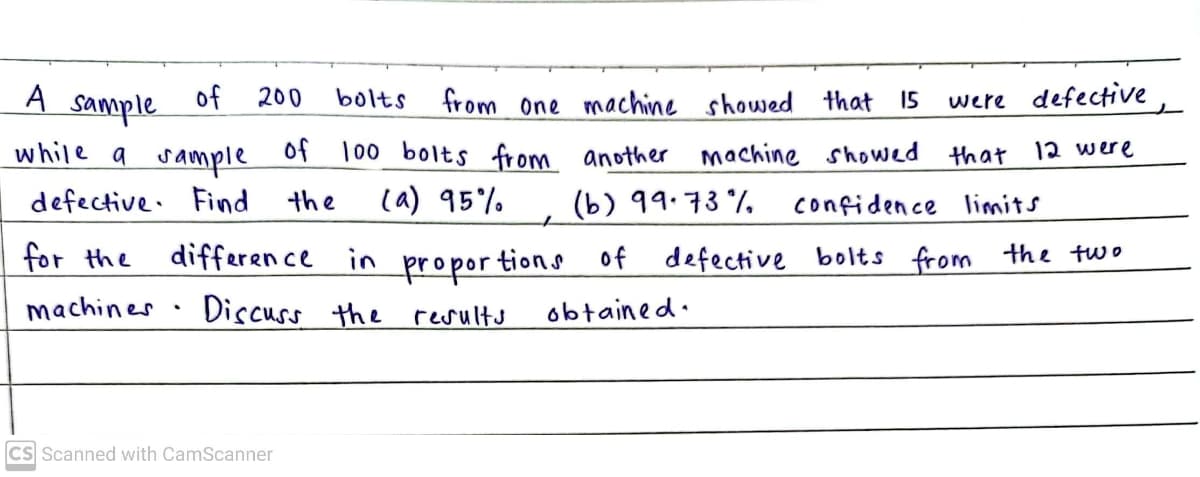 A sample of 200 bolts from one machine showed that 15 were defective,
while a sample of 100 bolts from another machine showed that 12 were
defective. Find the (a) 95%, (b) 99.73% confidence limits
for the difference in proportions of defective bolts from the two
machines. Discuss the results obtained.
CS Scanned with CamScanner